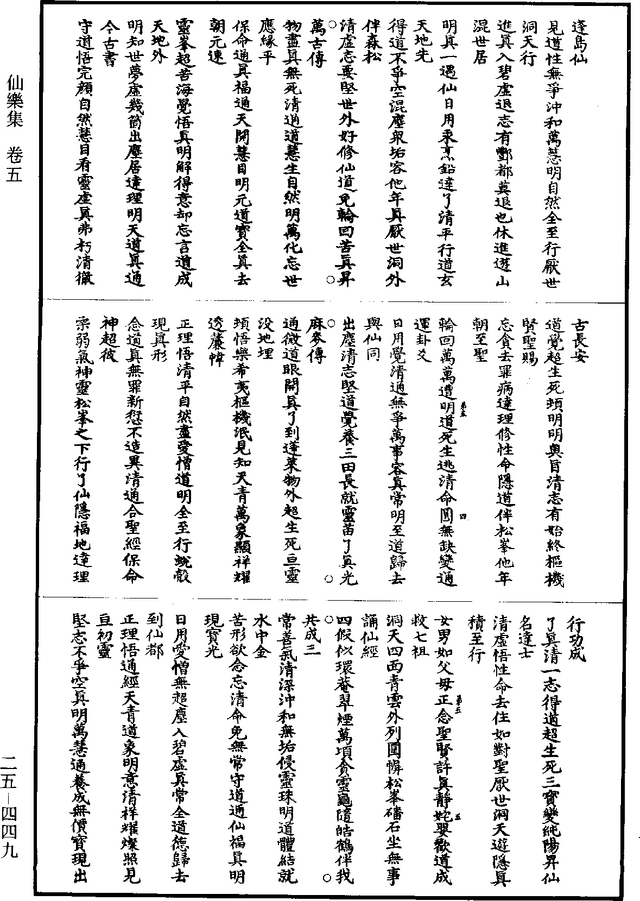 蓬島仙
見道性無爭沖和萬慧明自然全至行厭世
洞天行
進真入碧虛退志有酆都莫退也休進遊山
混世居
明真一遇仙日用汞烹鉛達了清平行道玄
天地先
得道不爭空混塵衆垢容他年真厭世洞外
伴森松
清虛志要堅世外好修仙道免輪回苦真昇
萬古傳
物盡真無死清通道慧生自然明萬化忘世
應緣平
保命通真福通天開慧目明元道寶全真去
朝元速
靈峯超苦海覺悟真明解得意却忘言道成
天地外
明知世夢虛幾箇出塵居達理明天道真通
今古書
守道悟完顔自然慧目看靈虛真弗朽清徹
古長安
道覺超生死頭明明奥旨清志有始終樞機
賢聖賜
忘貪去罪病達理修性命隱道伴松峯他年
朝至聖
輪回萬萬遭明道死生逃清命圓無缺變通
運卦爻
日用覺清通無爭萬事容真常明至道歸去
與仙同
出塵清志堅道覺養三田長就靈苗了真光
麻麥傳
通微道眼開真了到蓬萊物外超生死亘靈
没地埋
頭悟樂希夷樞機泯見知天青萬象顯祥耀
透簾幃
正理悟清平自然盡愛憎道明全至行蛻殼
現真形
念道真無罪新愆不造異清通合聖經保命
神超彼
柔弱氣神靈松峯之下行了仙隱福地達理
行功成
了真清一志得道超生死三寶變純陽昇仙
名達士
清虛悟性命去住如對聖厭世洞天遊隱真
積至行
女男如父母正念聖賢許真靜姹嬰歡道成
救七祖
洞天四面青雲外列圍憐松峯磻石坐無事
誦仙經
四假似環菴翠煙萬項貪靈龜隨皓鶴伴我
共成三
常善氣清深沖和無垢侵靈珠明道體結就
水中金
苦形欲念忘清命免無常守道通仙福真明
現寶光
日用愛憎無超塵入碧虛真常全道德歸去
到仙都
正理悟通經天青道象明意清祥耀燦照見
亘初靈
堅志不爭空真明萬慧通養成無價寶現出
仙樂集 卷五
二五－四四九